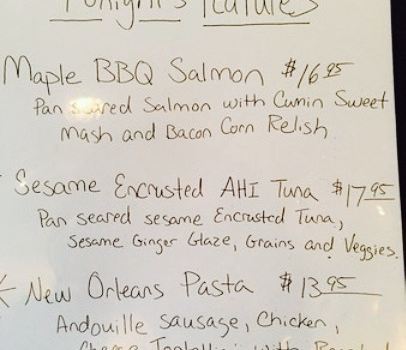 Tonight's Features
Maple BBQ Salmon $16.95
Pan seared Salmon with Cumin Sweet
Mash and Bacon Corn Relish
Sesame Encrusted AHI Tuna $17.95
Pan seared sesame Encrusted Tuna,
Sesame Ginger Glaze, Grains and Veggies.
New Orleans Pasta $13.95
Andouille Sausage, Chicken,
Cheese Tortellini with